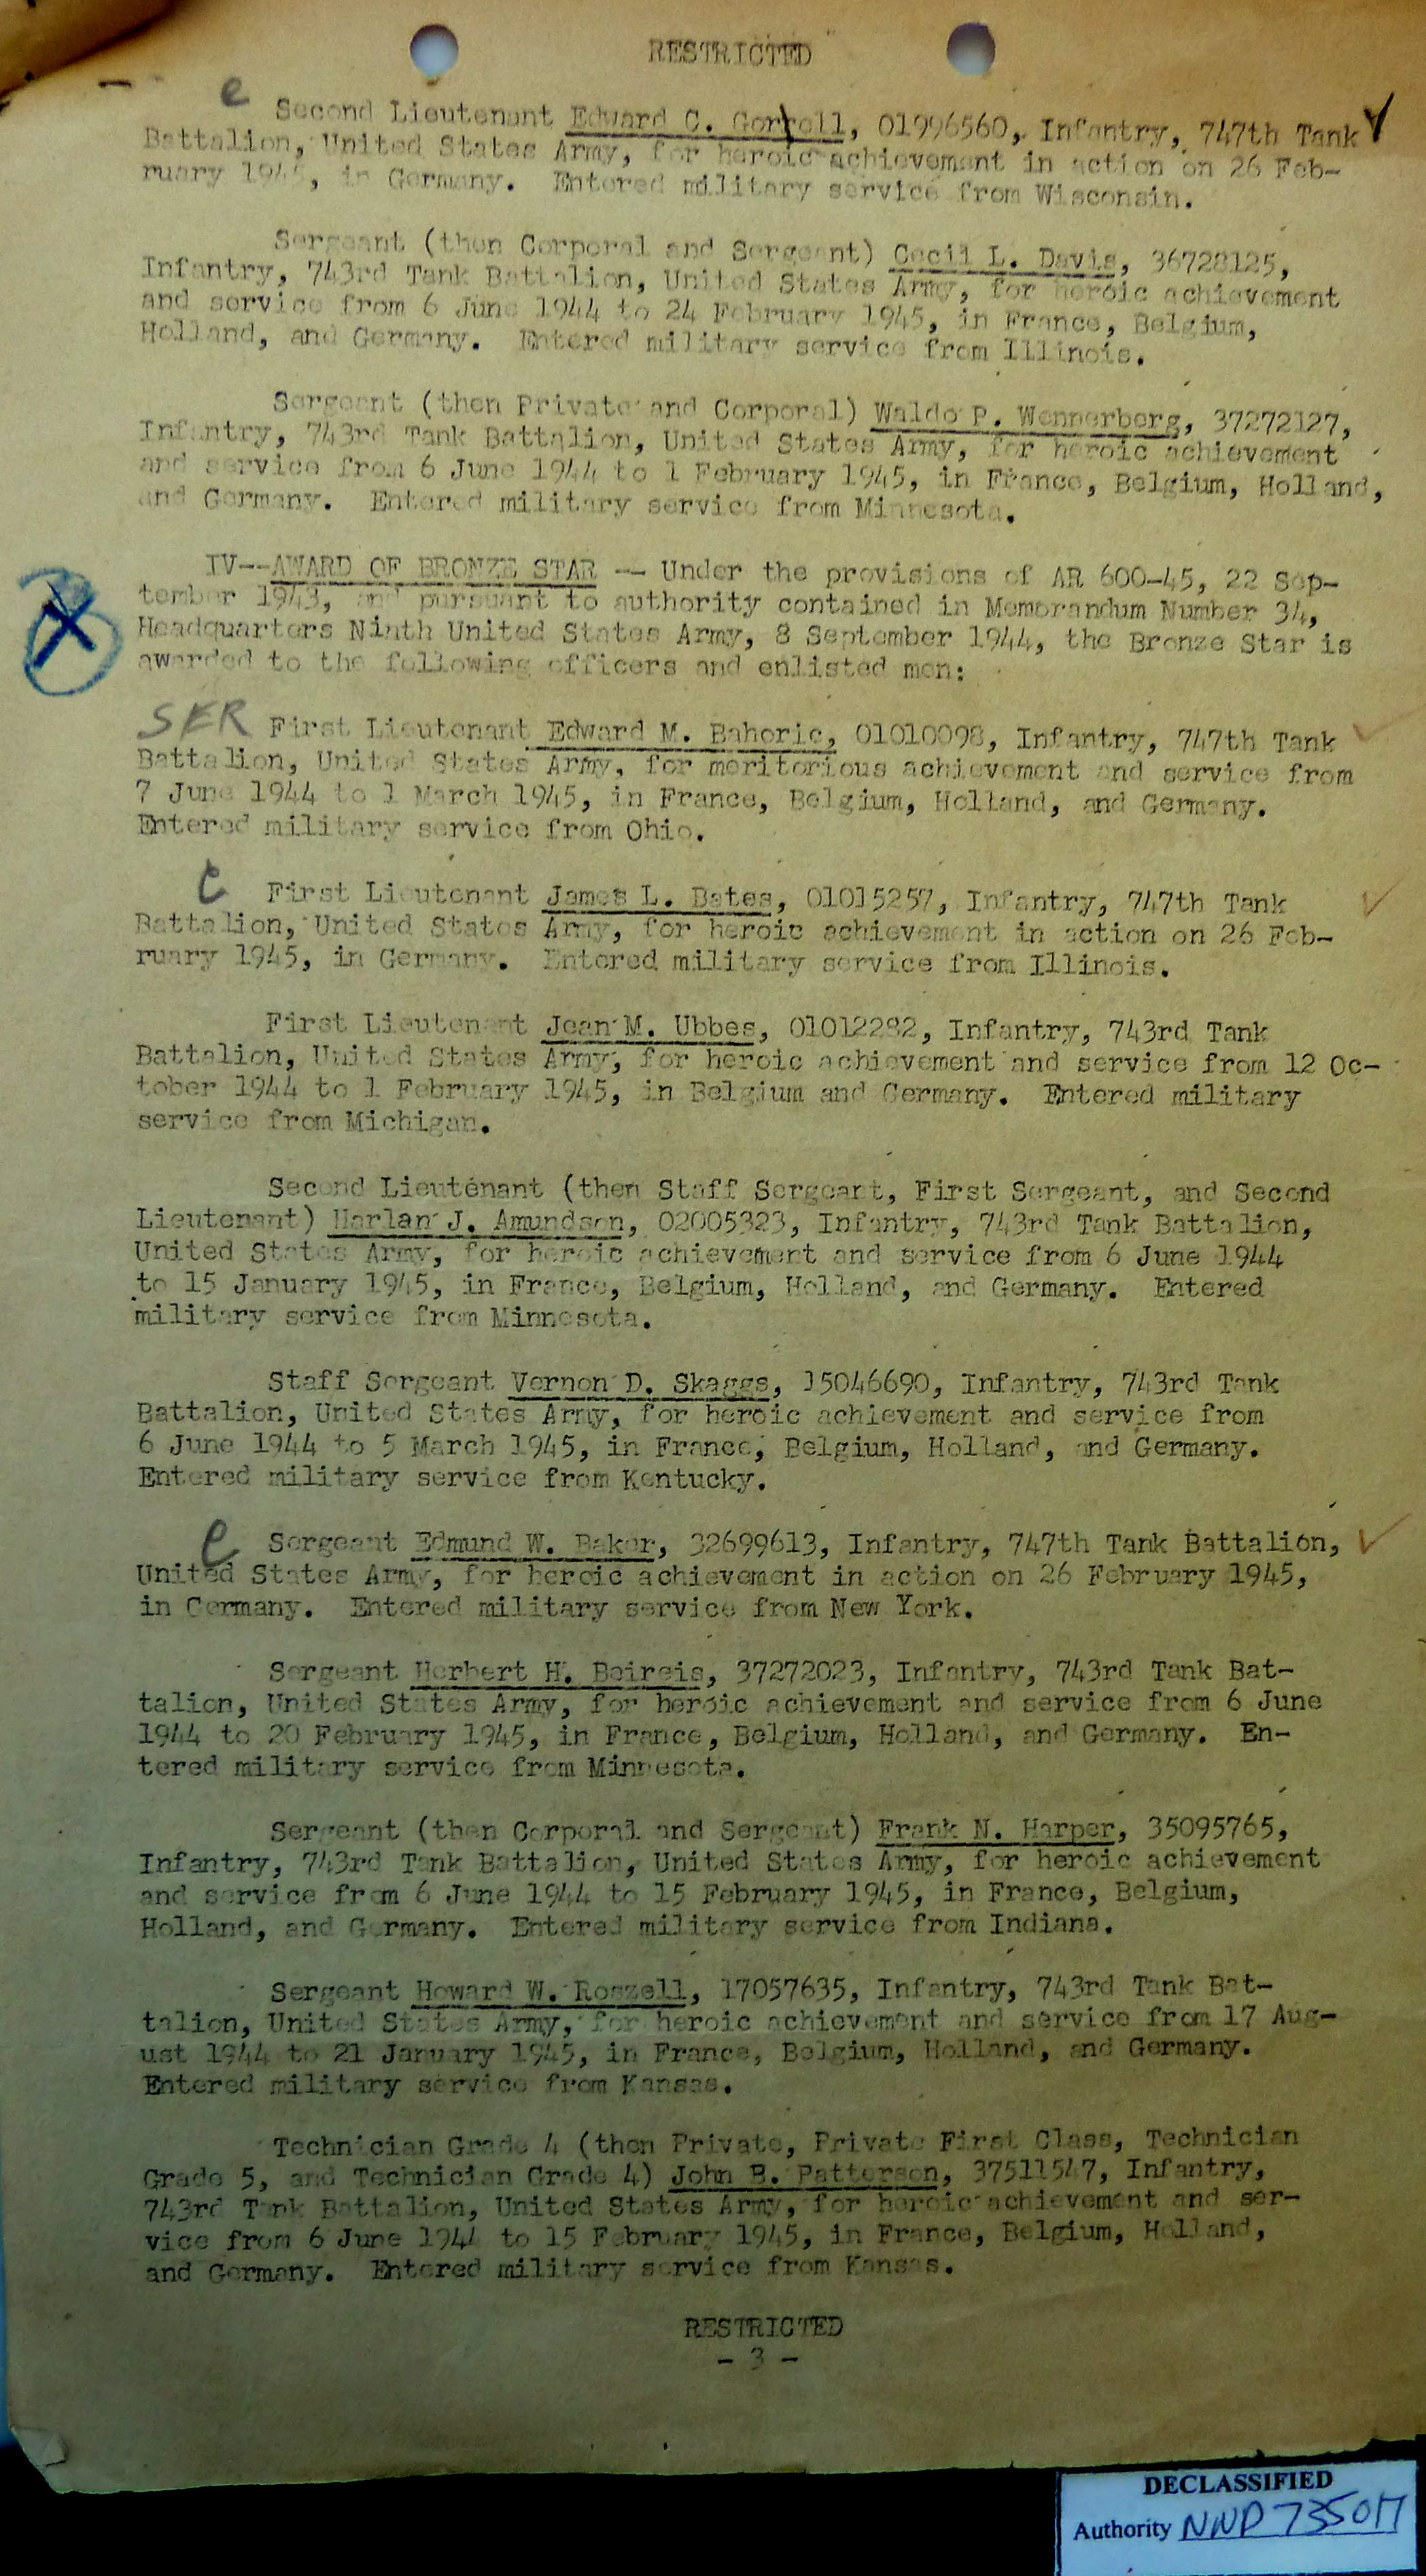 RESTRICTED
e
Second Lieutenant Edward C. Gorrell, 01996560, Infantry, 747th Tank
Battalion, United States Army, for heroic achievement in action on 26 Feb-
ruary 1945, in Germany. Entered military service from Wisconsin.
Sergeant (then Corporal and Sergeant) Cecil L. Davis, 36728125,
Infantry, 743rd Tank Battalion, United States Army, for heroic achievement
and service from 6 June 1944 to 24 February 1945, in France, Belgium,
Holland, and Germany. Entered military service from Illinois.
Sergeant (then Private and Corporal) Waldo P. Wennerberg, 37272127,
Infantry, 743rd Tank Battalion, United States Army, for heroic achievement
and service from 6 June 1944 to 1 February 1945, in France, Belgium, Holland,
and Germany. Entered military service from Minnesota.
IV--AWARD OF BRONZE STAR -- Under the provisions of AR 600-45, 22 Sep-
tember 1943, and pursuant to authority contained in Memorandum Number 34,
Headquarters Ninth United States Army, 8 September 1944, the Bronze Star is
awarded to the following officers and enlisted men:
SER First Lieutenant Edward M. Bahoric, 01010098, Infantry, 747th Tank
Battalion, United States Army, for meritorious achievement and service from
7 June 1944 to 1 March 1945, in France, Belgium, Holland, and Germany.
Entered military service from Ohio.
C First Lieutenant James L. Bates, 01015257, Infantry, 747th Tank
Battalion, United States Army, for heroic achievement in action on 26 Feb-
ruary 1945, in Germany. Entered military service from Illinois.
First Lieutenant Jean M. Ubbes, 01012282, Infantry, 743rd Tank
Battalion, United States Army, for heroic achievement and service from 12 Oc-
tober 1944 to 1 February 1945, in Belgium and Germany. Entered military
service from Michigan.
Second Lieutenant (then Staff Sergeant, First Sergeant, and Second
Lieutenant) Harlan J. Amundson, 02005323, Infantry, 743rd Tank Battalion,
United States Army, for heroic achievement and service from 6 June 1944
to 15 January 1945, in France, Belgium, Holland, and Germany. Entered
military service from Minnesota.
Staff Sergeant Vernon D. Skaggs, 15046690, Infantry, 743rd Tank
Battalion, United States Army, for heroic achievement and service from
6 June 1944 to 5 March 1945, in France, Belgium, Holland, and Germany.
Entered military service from Kentucky.
e Sergeant Edmund W. Baker, 32699613, Infantry, 747th Tank Battalion,
United States Army, for heroic achievement in action on 26 February 1945,
in Germany. Entered military service from New York.
Sergeant Herbert H. Beireis, 37272023, Infantry, 743rd Tank Bat-
talion, United States Army, for heroic achievement and service from 6 June
1944 to 20 February 1945, in France, Belgium, Holland, and Germany. En-
tered military service from Minnesota.
Sergeant (then Corporal and Sergeant) Frank N. Harper, 35095765,
Infantry, 743rd Tank Battalion, United States Army, for heroic achievement
and service from 6 June 1944 to 15 February 1945, in France, Belgium,
Holland, and Germany. Entered military service from Indiana.
Sergeant Howard W. Roszell, 17057635, Infantry, 743rd Tank Bat-
talion, United States Army, for heroic achievement and service from 17 Aug-
ust 1944 to 21 January 1945, in France, Belgium, Holland, and Germany.
Entered military service from Kansas.
Technician Grade 4 (then Private, Private First Class, Technician
Grade 5, and Technician Grade 4) John B. Patterson, 37511547, Infantry,
743rd Tank Battalion, United States Army, for heroic achievement and ser-
vice from 6 June 1944 to 15 February 1945, in France, Belgium, Holland,
and Germany. Entered military service from Kansas.
RESTRICTED
- 3 -
DECLASSIFIED
Authority NND 735017